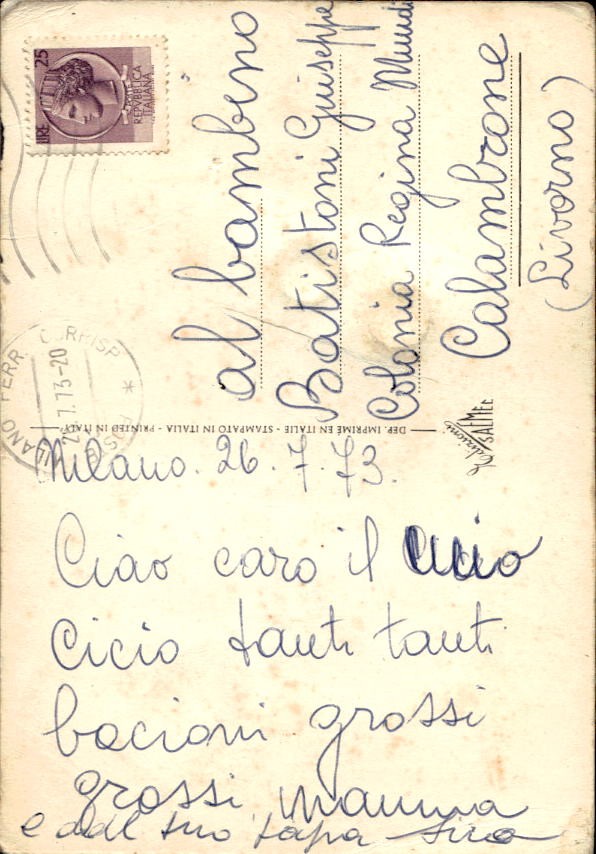 LIRE 25
POSTE
REPVBBLICA
ITALIANA
al bambino
Batistoni Giuseppe
Colonia Regina Mundi
Calambrone
(Livorno)
MILANO FERR. CORRISP.
7.73-20
POSTE
DEP. IMPRIMÉ EN ITALIE - STAMPATO IN ITALIA - PRINTED IN ITALY
edizioni
SAEMEC
Milano. 26.7.73.
Ciao caro il
Cicio tanti tanti
bacioni grossi
grossi mamma
e dal tuo papa